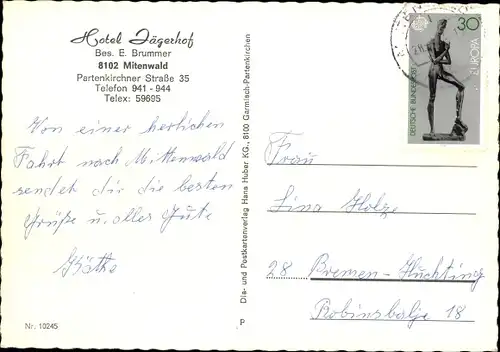 Hotel Jägerhof
Bes. E. Brummer
8102 Mitenwald
Partenkirchner Straße 35
Telefon 941 - 944
Telex: 59695
Von einer herlichen
Fahrt nach Mittenwald
sendet dir die besten
Grüße u. alles Gute
Käthe
Nr. 10245
Dia- und Postkartenverlag Hans Huber KG., 8100 Garmisch-Partenkirchen
P
30
EUROPA
DEUTSCHE BUNDESPOST
Frau
Lina Holze
28 Bremen-Huchting
Robinsbalje 18